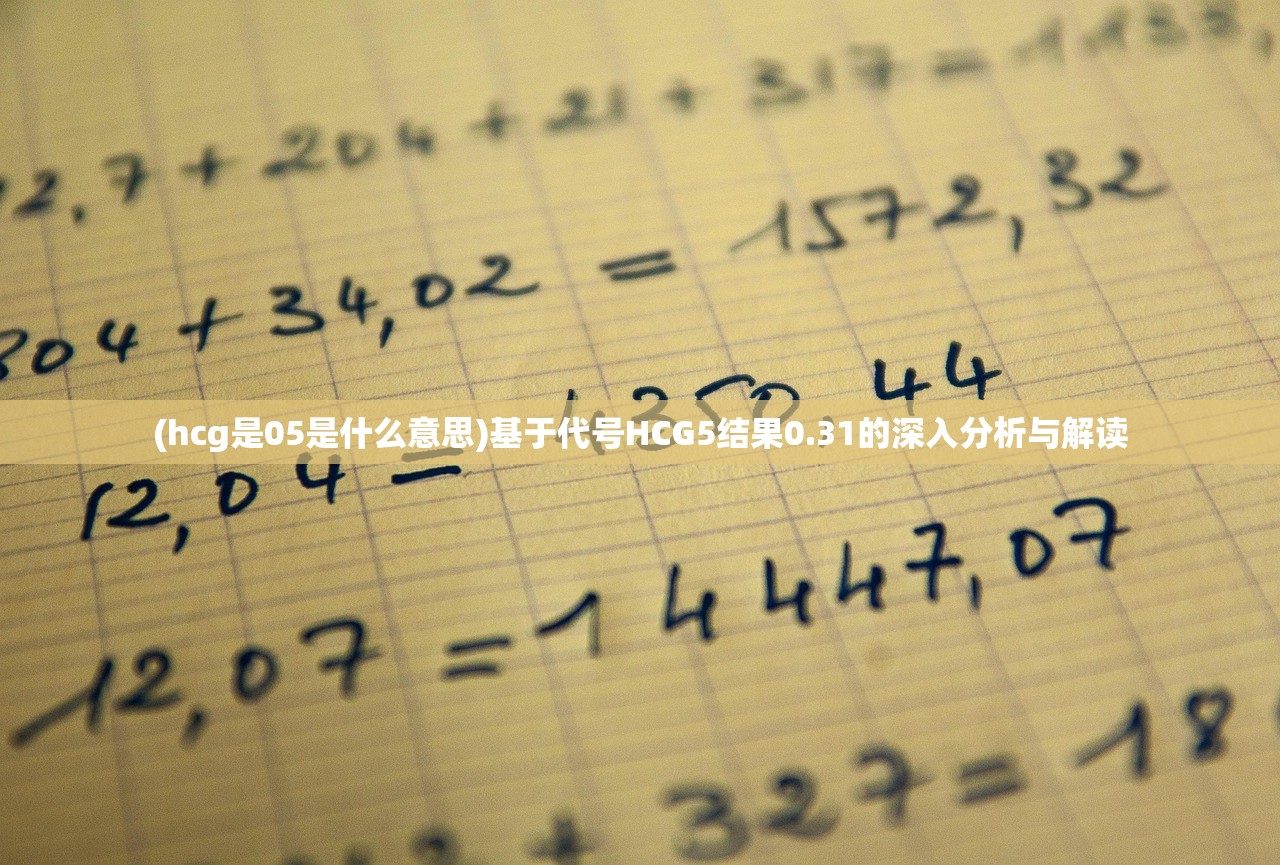 2,7 + 204 + 21 + 317 = 1133,
304 + 34,02 = 1572,32
1250,44
(hcg是05是什么意思)基于代号HCG5结果0.31的深入分析与解读
12,04 =
12,07 = 14447,07
+ 327 = 18